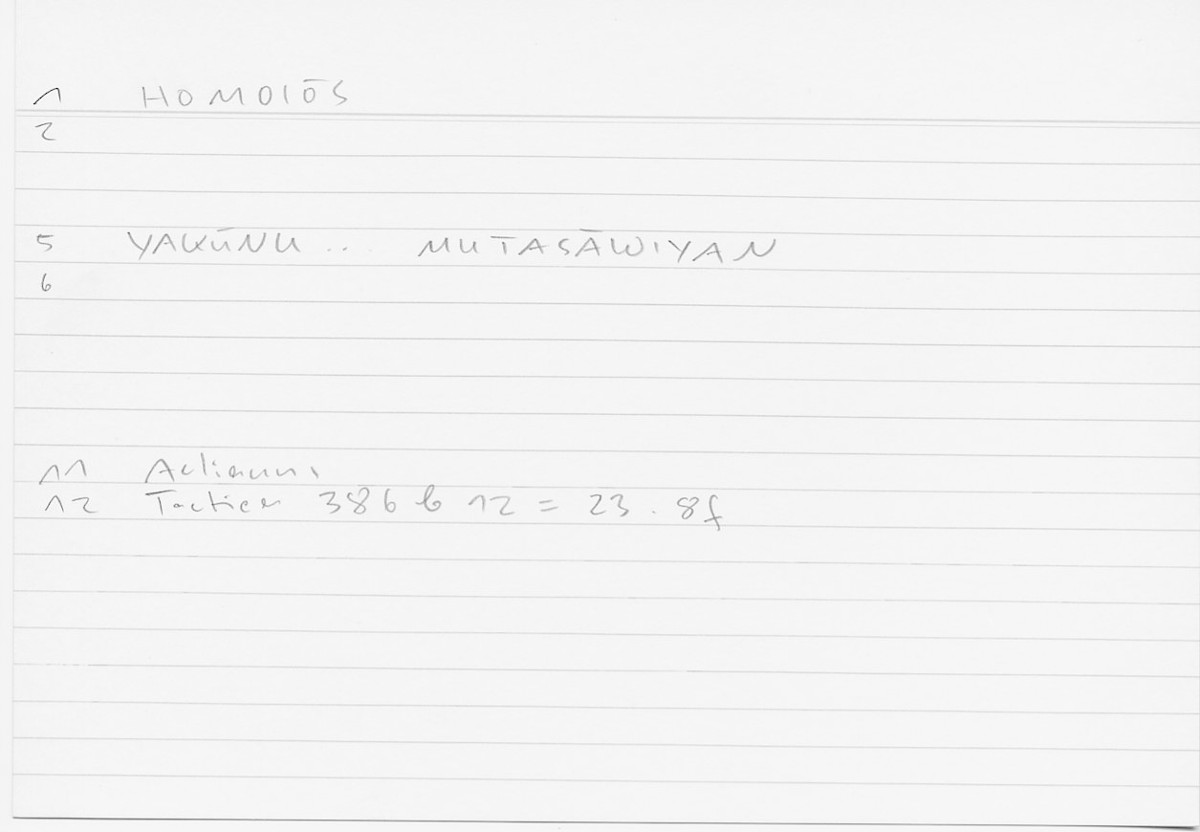 1 HOMOIŌS
2
5 YAKŪNU .. MUTASĀWIYAN
6
11 Aelianus
12 Tactica 386 b 12 = 23.8f